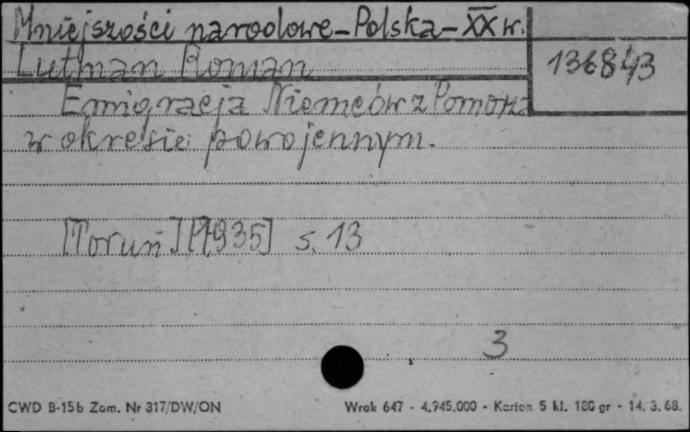 Mniejszości narodowe - Polska - XX w.
Lutman Roman
136843
Emigracja Niemców z Pomorza
w okresie powojennym.
[Toruń] [1935] s. 13
3
CWD B-15b Zam. Nr 317/DW/ON Wrak 647 - 4.945.000 - Karton 5 kl. 180 gr - 14. 3. 68.